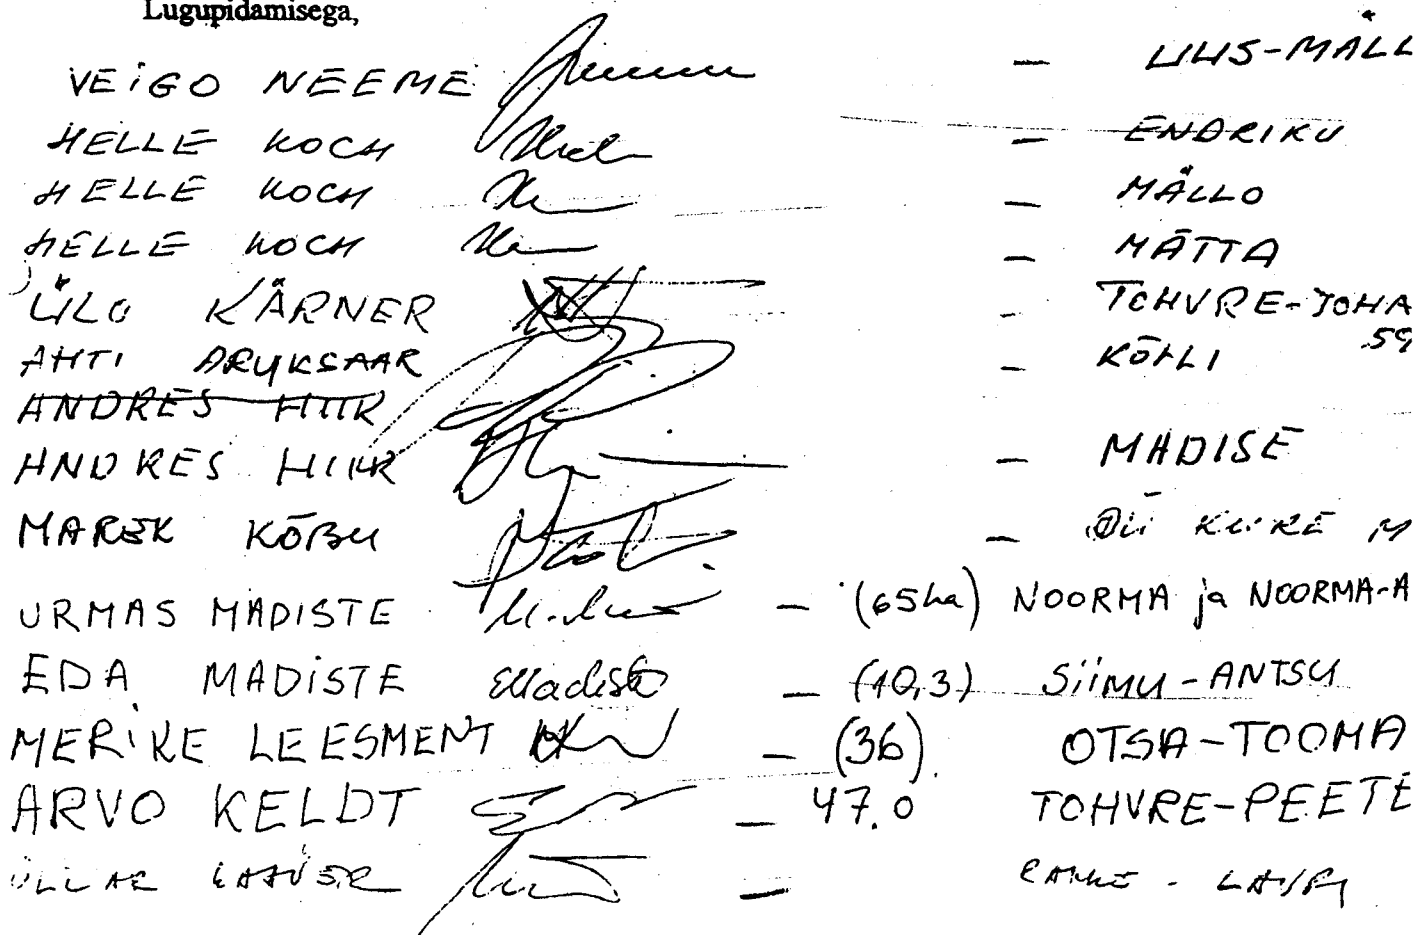 Lugupidamisega,
VEIGO NEEME – UUS-MÄLL
HELLE KOCH – ENDRIKU
HELLE KOCH – MÄLLO
HELLE KOCH – MÄTTA
ÜLO KÄRNER – TOHVRE-JOHA
59
AHTI DRUKSAAR – KÕHLI
ANDRES HIIR
ANDRES HIIR – MADISE
MAREK KÕBU – OÜ KURE M
URMAS MADISTE – (65ha) NOORMA ja NOORMA-A
EDA MADISTE EMadiste – (10,3) SIIMU-ANTSU
MERIKE LEESMENT – (36) OTSA-TOOMA
ARVO KELDT – 47.0 TOHVRE-PEETE
ÜLLAR –